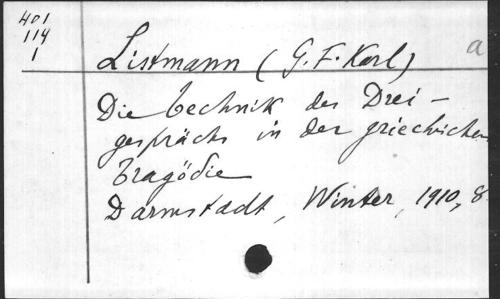 401
114
1
a
Listmann (G. F. Karl)
Die Technik des Drei-
gesprächs in der griechischen
Tragödie
Darmstadt, Winter, 1910, 8